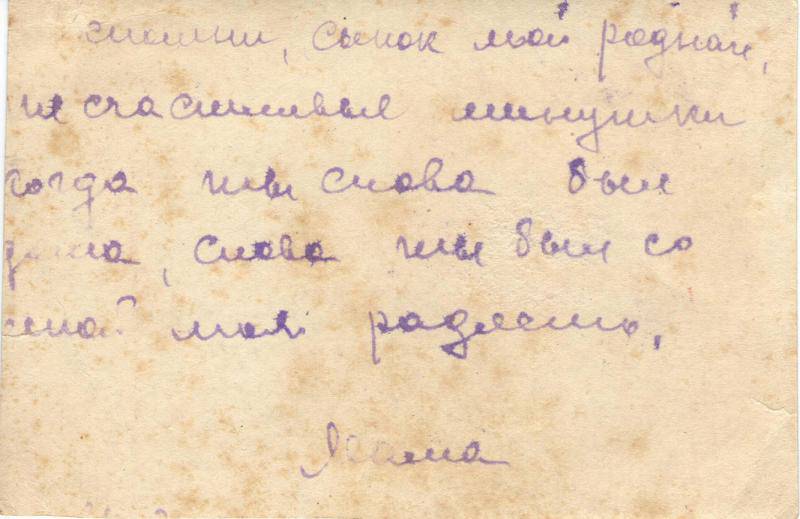 помни, сынок мой родной,
те счастливые минутки
когда ты снова был
дома, снова ты был со
мной моя радость.
Мама